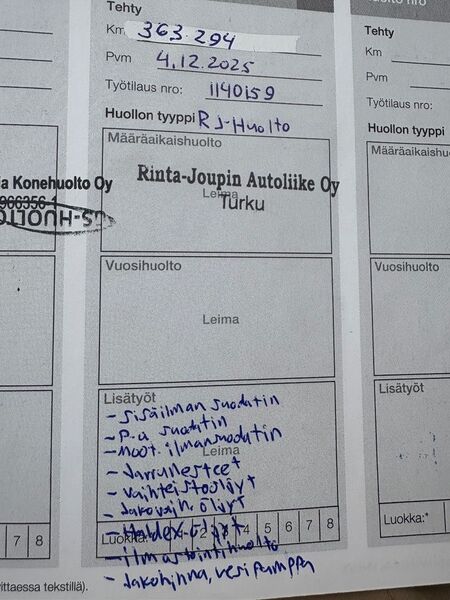 Tehty
Km 363.294
Pvm 4.12.2025
Työtilaus nro: 1140159
Huollon tyyppi RJ-Huolto
Määräaikaishuolto
Rinta-Joupin Autoliike Oy
Leima
Turku
Vuosihuolto
Leima
Lisätyöt
- sisäilman suodatin
- p-a suodatin
- moot. ilmansuodatin
Leima
- Jarrunesteet
- vaihteistoöljyt
- Jakovaih. öljyt
- Haldex öljyt
Luokka:* 2 3 4 5 6 7 8
- ilmastointihuolto
- Jakohihna, vesipumppu
ia Konehuolto Oy
966356-1
S-HUOLTO
7 8
vittaessa tekstillä).
Huolto nro
Tehty
Km
Pvm
Työtilaus nro:
Huollon tyyppi
Määräaikaishu
Vuosihuolto
Lisätyöt
Luokka:*